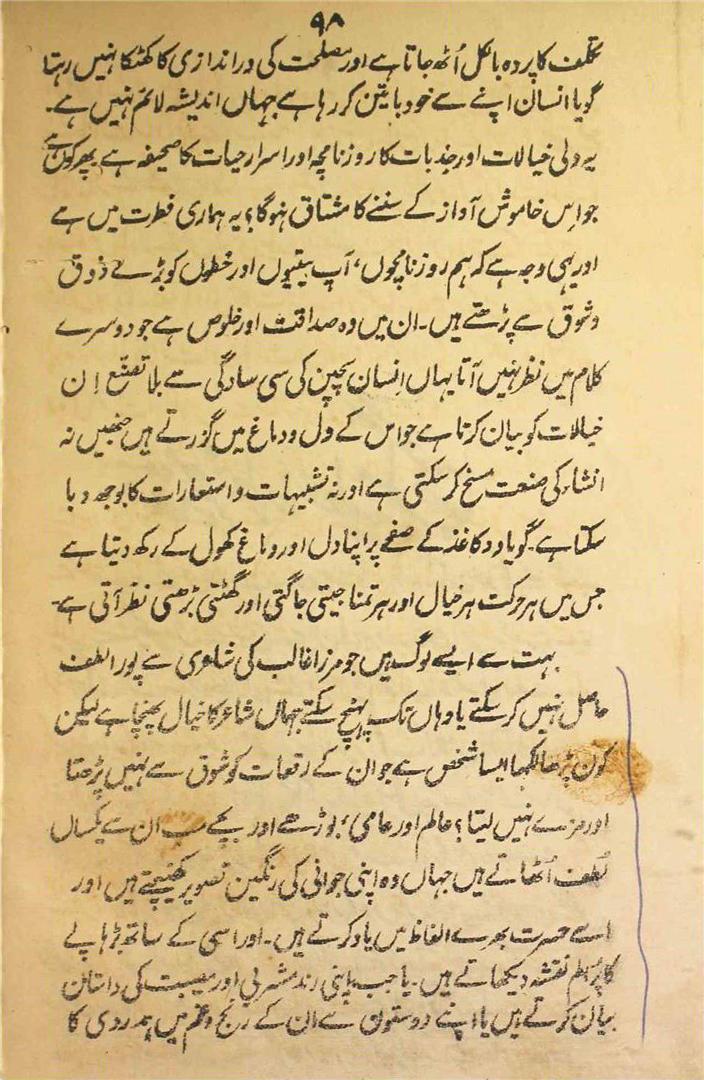 ۹۸
تکلف کا پردہ بالکل اُٹھ جاتا ہے اور مصلحت کی در اندازی کا کھٹکا نہیں رہتا
گویا انسان اپنے سے خود باتیں کر رہا ہے جہاں اندیشہ لائم نہیں ہے۔
یہ دلی خیالات اور جذبات کا روزنامچہ اور اسرار حیات کا صحیفہ ہے پھر کون ہے
جو اِس خاموش آواز کے سننے کا مشتاق نہوگا؟ یہ ہماری فطرت میں ہے
اور یہی وجہ ہے کہ ہم روزنامچوں، آپ بیتیوں اور خطوں کو بڑے ذوق
وشوق سے پڑھتے ہیں۔ ان میں وہ صداقت اور خلوص ہے جو دوسرے
کلام میں نظر نہیں آتا یہاں اِنسان بچپن کی سی سادگی سے بلا تصنّع اِن
خیالات کو بیان کرتا ہے جو اس کے دل و دماغ میں گزرتے ہیں جنھیں نہ
انشاء کی صنعت مسخ کر سکتی ہے اور نہ تشبیہات و استعارات کا بوجھ دبا
سکتا ہے۔ گویا وہ کاغذ کے صفحے پر اپنا دل اور دماغ کھول کے رکھ دیتا ہے
جس میں ہر حرکت ہر خیال اور ہر تمنا جیتی جاگتی اور گھٹتی بڑھتی نظر آتی ہے۔
بہت سے ایسے لوگ ہیں جو مرزا غالب کی شاعری سے پورا لطف
حاصل نہیں کر سکتے یا وہاں تک پہنچ سکتے جہاں شاعر کا خیال پہنچا ہے لیکن
کون پڑھا لکھا ایسا شخص ہے جو ان کے رقعات کو شوق سے نہیں پڑھتا
اور مزے نہیں لیتا؟ عالم اور عامی، بوڑھے اور بچے سب ان سے یکساں
لُطف اُٹھاتے ہیں جہاں وہ اپنی جوانی کی رنگین تصویر کھینچتے ہیں اور
اسے حسرت بھرے الفاظ میں یاد کرتے ہیں۔ اور اسی کے ساتھ بڑھاپے
کا پُر الم نقشہ دیکھاتے ہیں۔ یا جب اپنی رند مشربی اور مصیبت کی داستان
بیان کرتے ہیں یا اپنے دوستوں سے ان کے رنج و غم میں ہمدردی کا